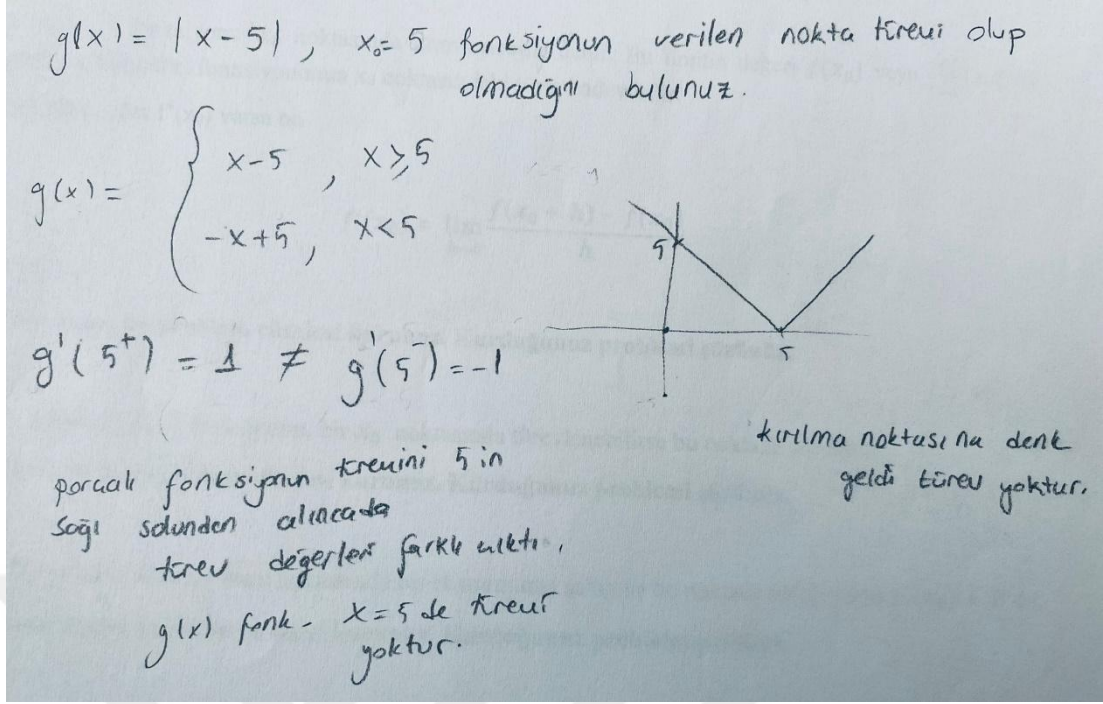 g(x) = |x-5|, x₀=5 fonksiyonun verilen nokta türevi olup
olmadığını bulunuz.
g(x) = { x-5, x≥5
-x+5, x<5
5
5
g'(5⁺) = 1 ≠ g'(5⁻) = -1
kırılma noktasına denk
geldi türev yoktur.
parçalı fonksiyonun türevini 5 in
sağı solunden alıncada
türev değerleri farklı çıktı.
g(x) fonk. x=5 de türevi
yoktur.